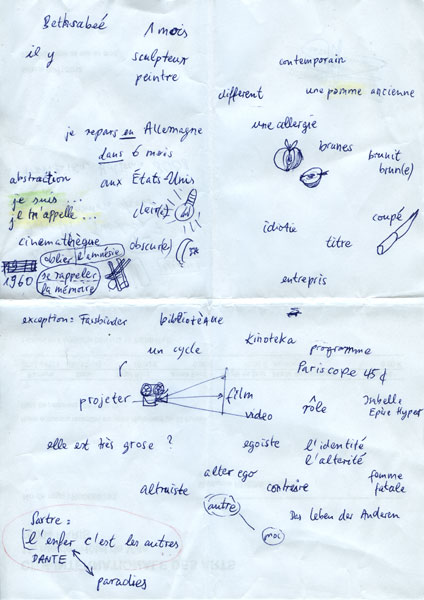 Bethsabeé
1 mois
il y
sculpteur
peintre
je repars en Allemagne
dans 6 mois
abstraction
aux États-Unis
je suis ...
je m'appelle ...
clair(e)
cinemathèque
obscur(e)
oblier l'amnèsie
1960
se rappeler
la mémoire
contemporain
different
une pomme ancienne
une allergie
brunes
brunit
brun(e)
idiotie
titre
coupé
entrepris
exception: Fassbinder
bibliotèque
un cycle
Kinoteka
programme
Pariscope 45 ¢
projeter
film
video
rôle
Isabelle
elle est très grose ?
egoiste
l'identité
l'alterité
alter ego
femme
fatale
altruiste
contraire
autre
Das leben der Anderen
moi
Sartre:
l'enfer c'est les autres
DANTE
paradies